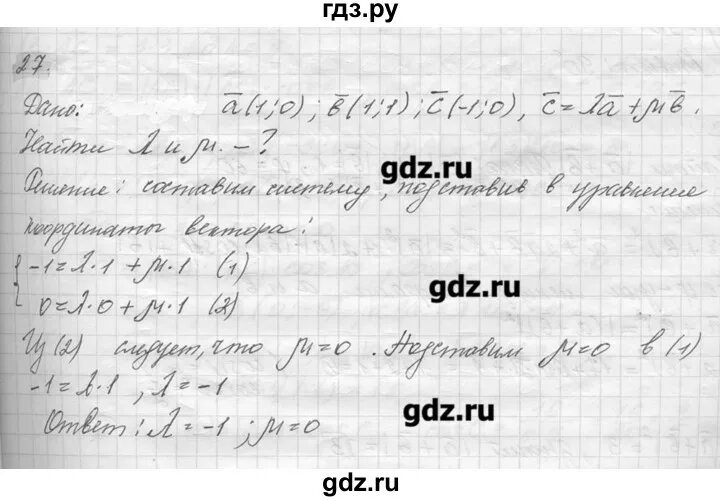 гдз.ру
27.
Дано: a̅(1;0); b̅(1;1); c̅(-1;0), c̅=λa̅+μb̅.
Найти λ и μ. -?
gdz.ru
Решение: составим систему, подставив в уравнение
координаты вектора:
-1=λ·1+μ·1 (1)
gdz.ru
0=λ·0+μ·1 (2)
Из (2) следует, что μ=0. Подставим μ=0 в (1)
-1=λ·1, λ=-1
gdz.ru
Ответ: λ=-1; μ=0
gdz.ru